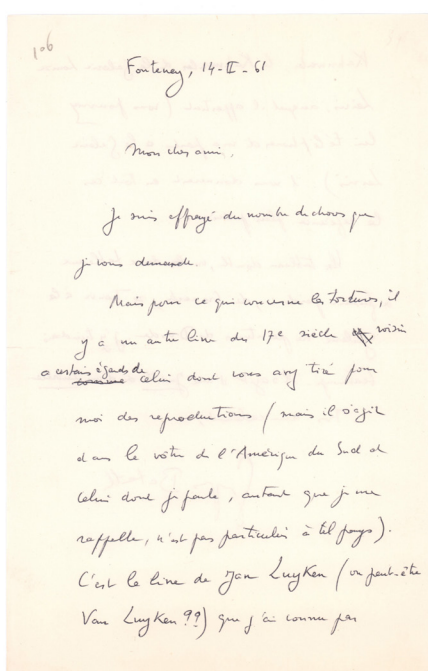 106
Fontenay, 14-II-61
Mon cher ami,
Je suis effrayé du nombre de choses que
je vous demande.
Mais pour ce qui concerne les tortures, il
y a un autre livre du 17e siècle voisin
a certains égards de
comme celui dont vous avez tiré pour
moi des reproductions (mais il s'agit
dans le vôtre de l'Amérique du Sud et
celui dont je parle, autant que je me
rappelle, n'est pas particulier à tel pays).
C'est le livre de Jan Luyken (ou peut-être
Van Luyken ??) que j'ai connu par